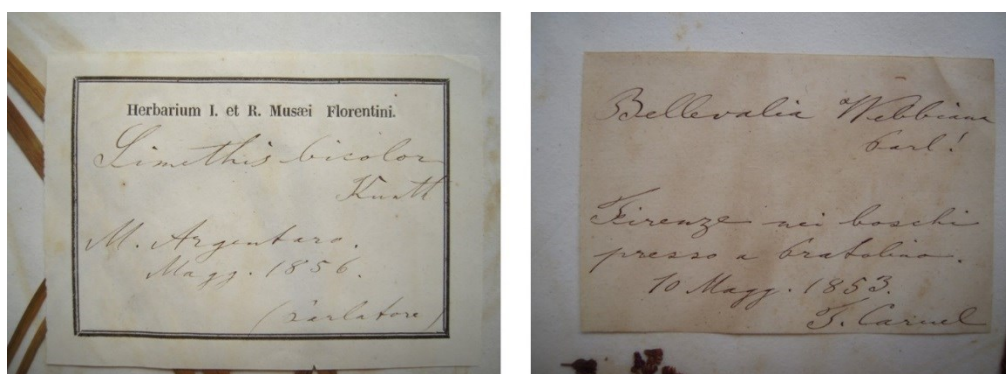 Herbarium I. et R. Musæi Florentini.
Simethis bicolor
Kunth
M. Argentaro.
Magg. 1856.
(Parlatore)
Bellevalia Webbiana
Parl!
Firenze nei boschi
presso a Pratolino.
10 Magg. 1853.
T. Caruel